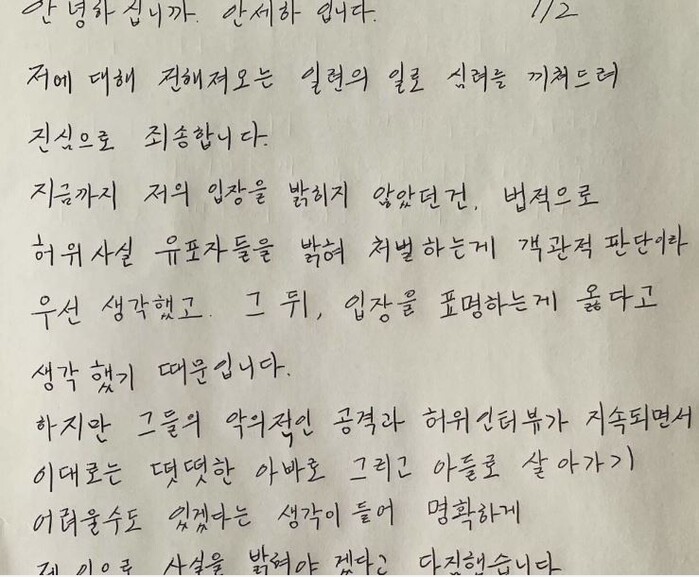 안녕하십니까. 안세하 입니다. 1/2
저에 대해 전해져오는 일련의 일로 심려를 끼쳐드려
진심으로 죄송합니다.
지금까지 저의 입장을 밝히지 않았던건, 법적으로
허위사실 유포자들을 밝혀 처벌하는게 객관적 판단이라
우선 생각했고. 그 뒤, 입장을 표명하는게 옳다고
생각했기 때문입니다.
하지만 그들의 악의적인 공격과 허위인터뷰가 지속되면서
이대로는 떳떳한 아빠로 그리고 아들로 살아가기
어려울수도 있겠다는 생각이 들어 명확하게
제 입으로 사실을 밝혀야 겠다고 다짐했습니다